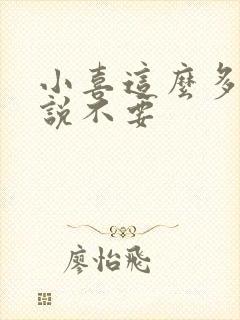 小喜這麼多
說不要
廖怡飛